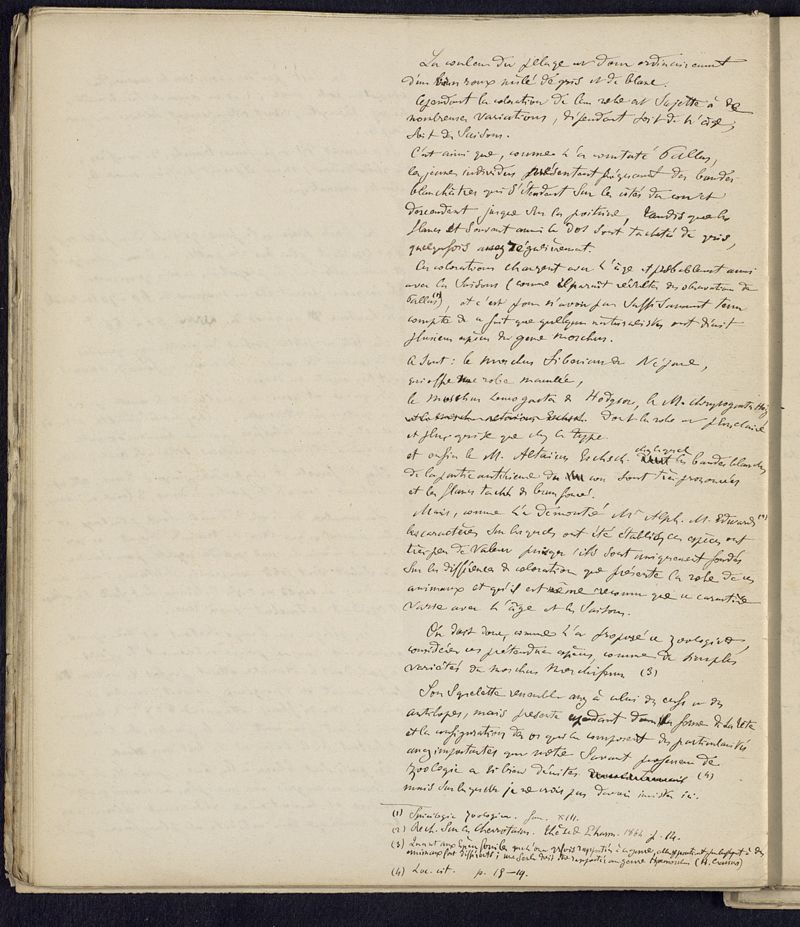 La couleur du pelage est donc ordinairement
d'un brun roux mêlé de gris et de blanc.
Cependant la coloration de leur robe est sujette à de
nombreuses variations, dépendant soit de l'âge,
soit des saisons.
C'est ainsi que, comme l'a constaté Pallas,
les jeunes individus présentent fréquemment des bandes
blanchâtres qui s'étendent sur les côtés du cou et
descendent jusque sur la poitrine, tandis que les
flancs et souvent aussi le dos sont tachetés de gris,
quelquefois assez régulièrement.
Ces colorations changent avec l'âge et probablement aussi
avec les saisons (comme il paraît résulter des observations de
Pallas (1)), et c'est pour n'avoir pas suffisamment tenu
compte de ce fait que quelques naturalistes ont décrit
plusieurs espèces du genre Moschus.
Ce sont : le Moschus Sibiricus de
qui offre une robe maculée,
le Moschus leucogaster de Hodgson, le M. chrysogaster Hodg
dont la robe est plus claire
et plus grise que chez le type
et enfin le M. Altaicus Eschsch. chez lequel les bandes blanches
de la partie antérieure du cou sont très prononcées
et les flancs tachés de brun foncé.
Mais, comme l'a démontré Mr Alph. M. Edwards (2)
les caractères sur lesquels ont été établies ces espèces ont
très peu de valeur puisqu'ils sont uniquement fondés
sur les différences de coloration que présente la robe de ces
animaux et qu'il est même reconnu que ce caractère
varie avec l'âge et les saisons.
On doit donc, comme l'a proposé ce zoologiste,
considérer ces prétendues espèces, comme de simples
variétés du Moschus Moschiferus (3)
Son squelette ressemble assez à celui des cerfs et des
antilopes, mais présente cependant dans la forme de la tête
et la configuration des os qui la composent des particularités
assez importantes que notre savant professeur de
zoologie a si bien décrites (4)
mais sur lesquelles je ne crois pas devoir insister ici.
(1) Spicilegia zoologica. fasc. XIII.
(2) Rech. sur les Chevrotains. Thèse de Pharm. 1864 p. 14.
(3) Quant aux espèces fossiles qu'on a rapportées à ce genre, elles
animaux fort différents ; une seule doit être rapportée au genre
(4) Loc. cit. p. 18-19.